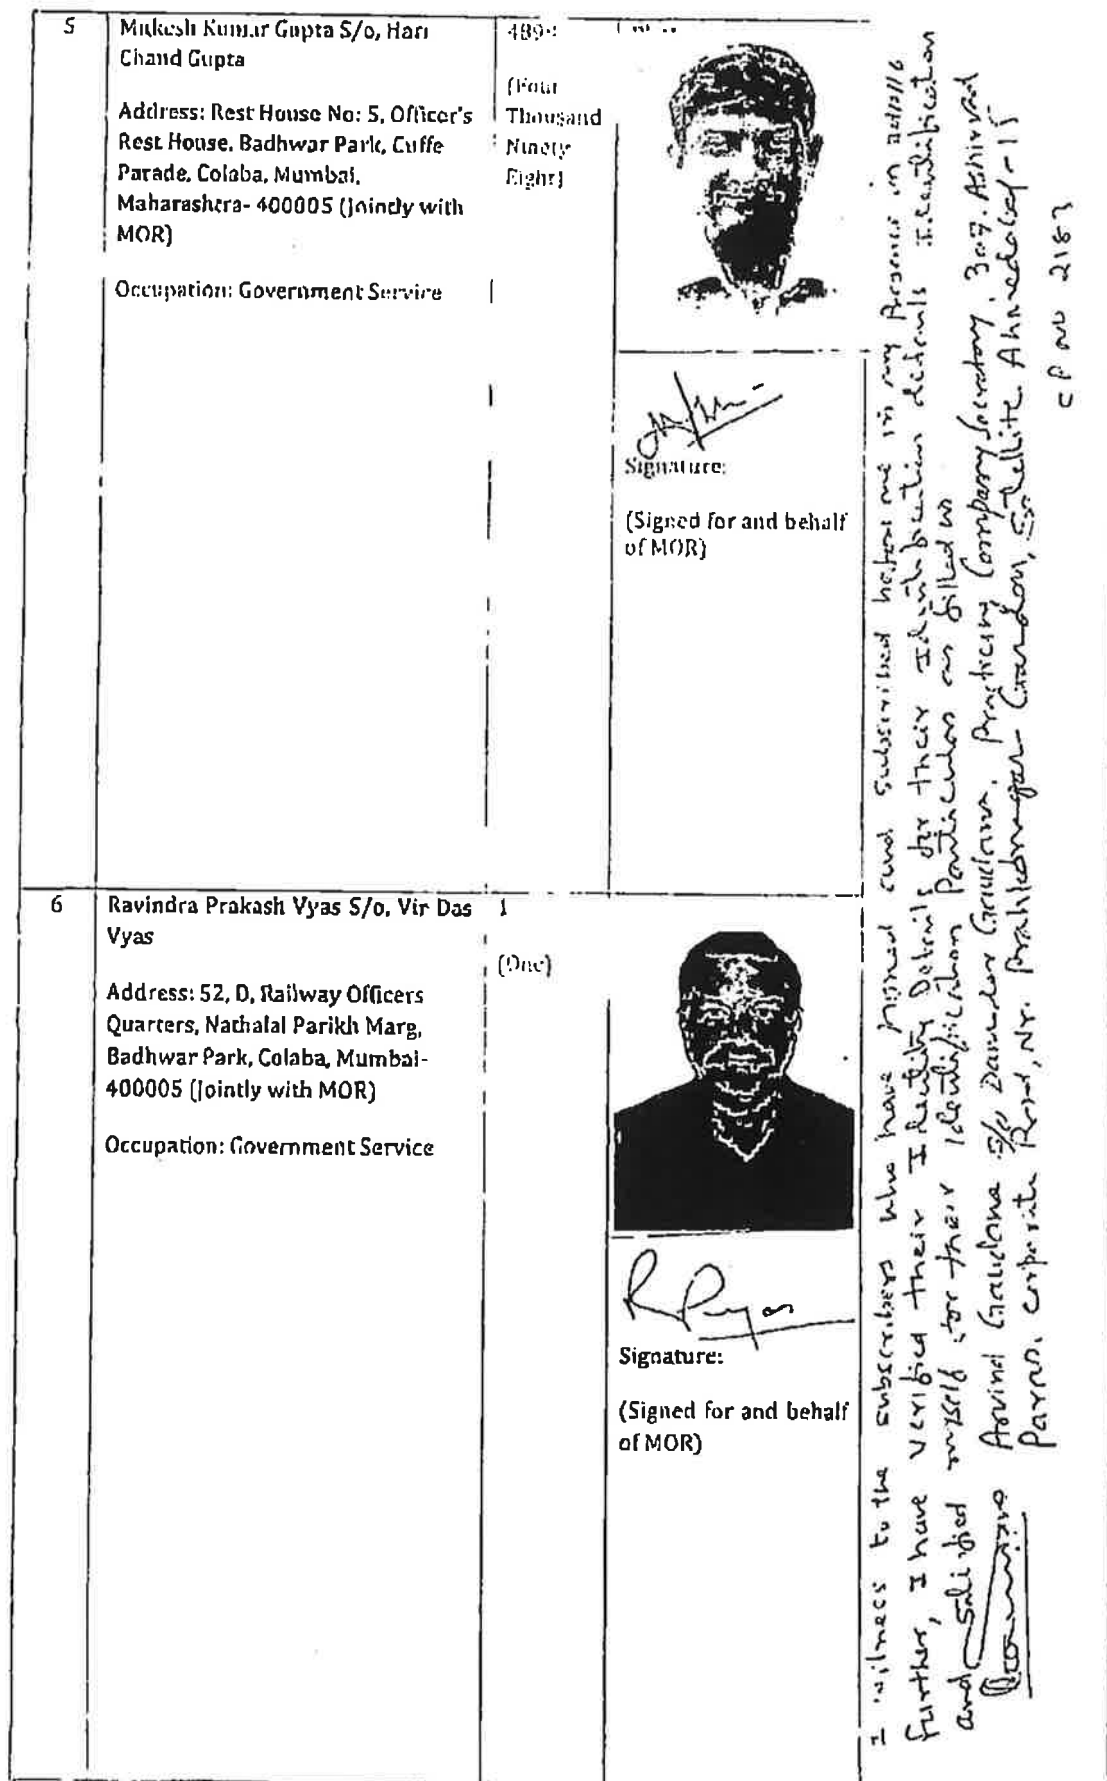 5
Mukesh Kumar Gupta S/o, Hari
Chand Gupta
Address: Rest House No: 5, Officer's
Rest House, Badhwar Park, Cuffe
Parade, Colaba, Mumbai,
Maharashtra- 400005 (Jointly with
MOR)
Occupation: Government Service
(Four
Thousand
Ninety
Eight)
Signature:
(Signed for and behalf
of MOR)
6
Ravindra Prakash Vyas S/o, Vir Das
Vyas
Address: 52, D, Railway Officers
Quarters, Nathalal Parikh Marg,
Badhwar Park, Colaba, Mumbai-
400005 (Jointly with MOR)
Occupation: Government Service
1
(One)
Signature:
(Signed for and behalf
of MOR)
I witness to the subscribers who have signed and subscribed before me in my presence
further, I have verified their Identity Details for their Identification details Identification
and satisfied myself for their identification particulars as filled in
Arvind Gaudana S/o Gaudana, Practicing Company Secretary, 307, Ashirwad
Paras, Corporate Road, Nr. Prahladnagar Garden, Satellite Ahmedabad-15
CP NO 2183